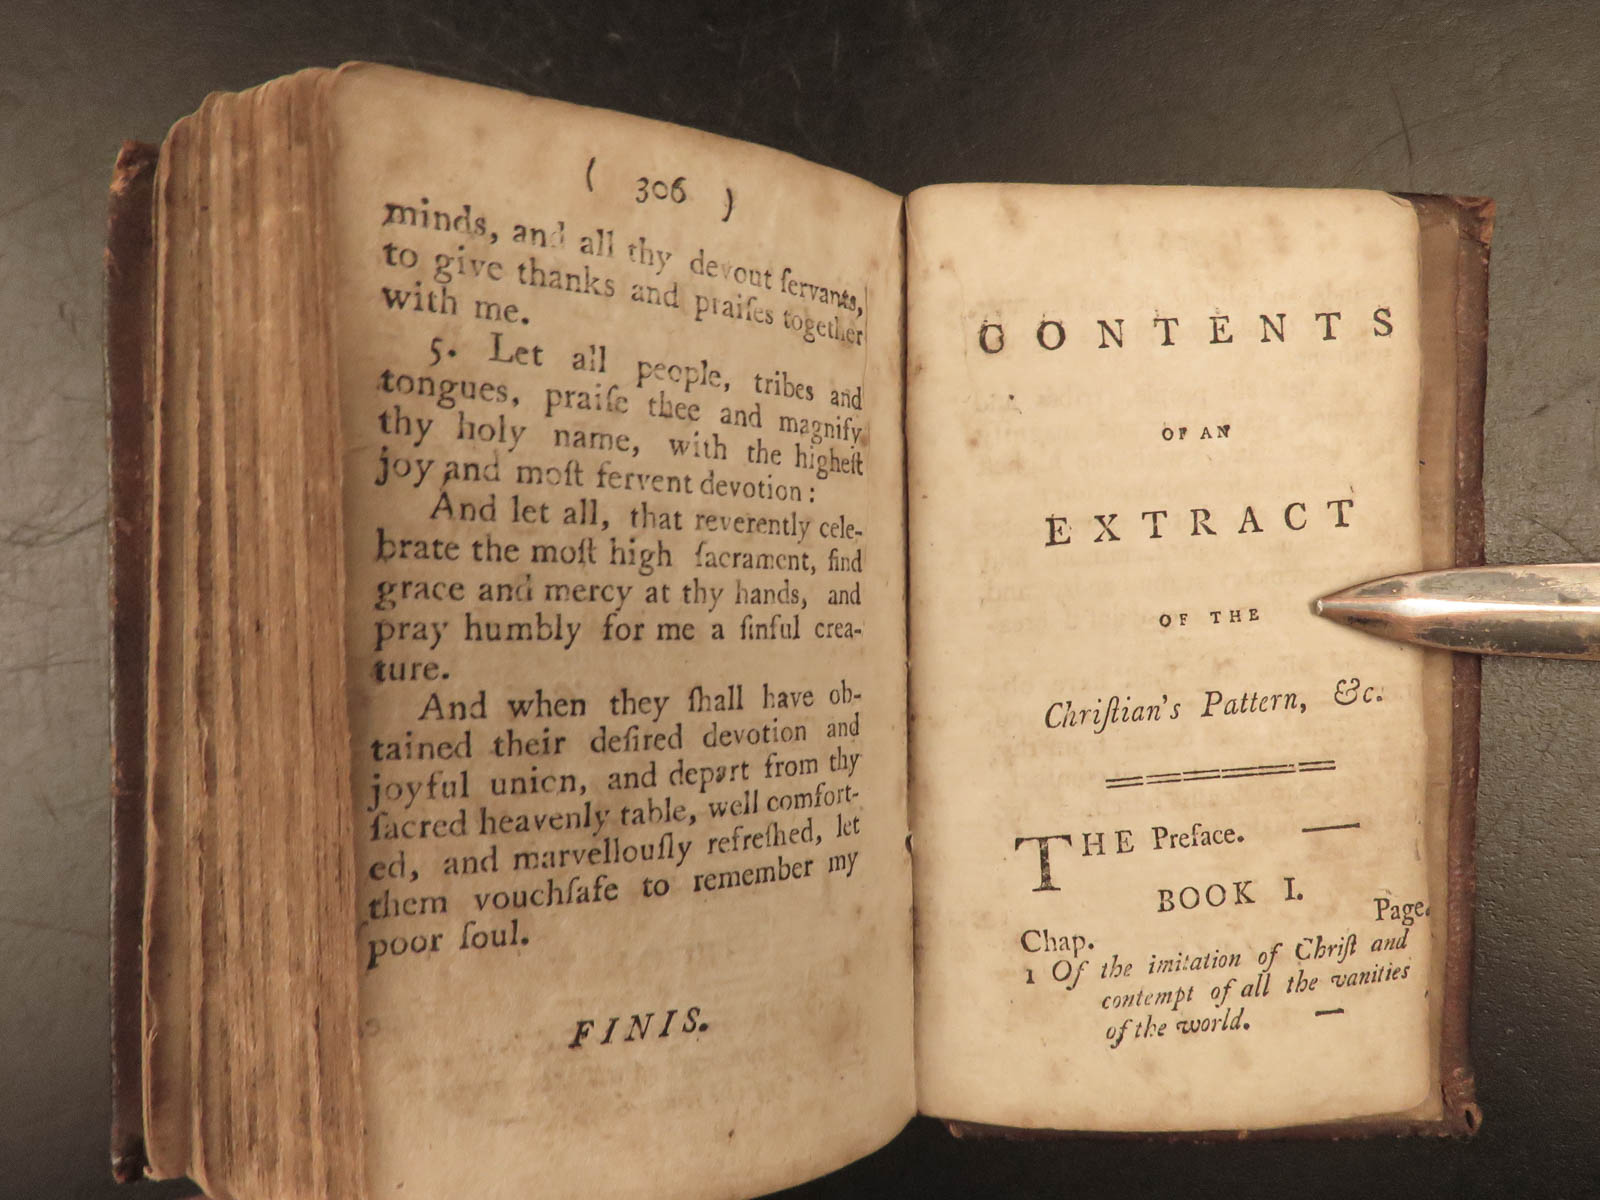 ( 306 )
minds, and all thy devout ſervants,
to give thanks and praiſes together
with me.
5. Let all people, tribes and
tongues, praiſe thee and magnify
thy holy name, with the higheſt
joy and moſt fervent devotion:
And let all, that reverently cele-
brate the moſt high ſacrament, find
grace and mercy at thy hands, and
pray humbly for me a ſinful crea-
ture.
And when they ſhall have ob-
tained their deſired devotion and
joyful union, and depart from thy
ſacred heavenly table, well comfort-
ed, and marvellouſly refreſhed, let
them vouchſafe to remember my
poor ſoul.
FINIS.
CONTENTS
OF AN
EXTRACT
OF THE
Chriſtian's Pattern, &c.
THE Preface. —
BOOK I.
Chap. Page.
1 Of the imitation of Chriſt and
contempt of all the vanities
of the world. —